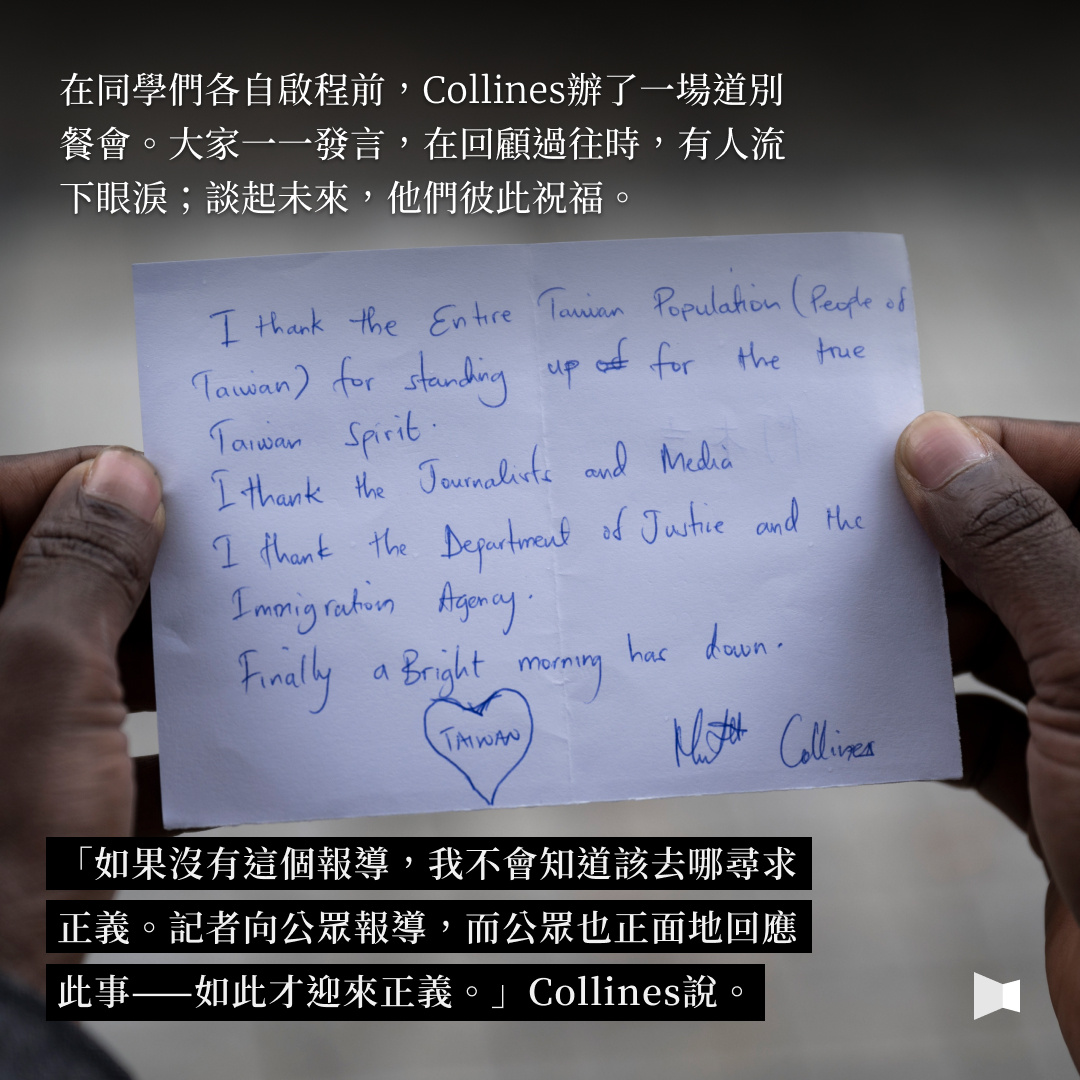 在同學們各自啟程前，Collines辦了一場道別
餐會。大家一一發言，在回顧過往時，有人流
下眼淚；談起未來，他們彼此祝福。
I thank the Entire Taiwan Population (People of
Taiwan) for standing up of for the true
Taiwan Spirit.
I thank the Journalists and Media
I thank the Department of Justice and the
Immigration Agency.
Finally a Bright morning has down.
TAIWAN
Collines
「如果沒有這個報導，我不會知道該去哪尋求
正義。記者向公眾報導，而公眾也正面地回應
此事——如此才迎來正義。」Collines說。